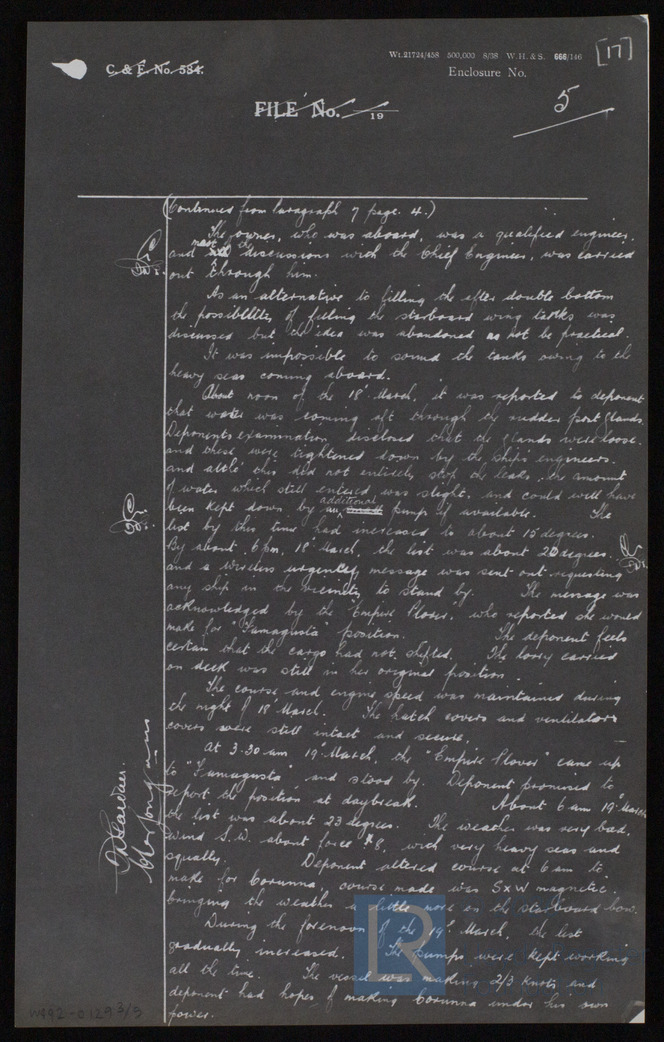 [17]
Wt.21724/458 500,000 8/38 W.H.&S. 666/146
C. & E. No. 584.
Enclosure No.
FILE No. 19
5
(Continued from Paragraph 7 page 4.)
The owner, who was aboard, was a qualified engineer,
and all most the discussions with the Chief Engineer, was carried
out through him.
As an alternative to filling the after double bottom
the possibility of filling the starboard wing tanks was
discussed but the idea was abandoned as not be practical.
It was impossible to sound the tanks owing to the
heavy seas coming aboard.
About noon of the 18th March, it was reported to deponent
that water was coming aft through the rudder post glands.
Deponents examination disclosed that the glands were loose.
and these were tightened down by the ship's engineers.
and altho' this did not entirely stop the leaks, the amount
of water which still entered was slight, and could well have
been kept down by an additional pump if available. The
list by this time had increased to about 15 degrees.
By about 6 pm, 18th March, the list was about 20 degrees.
and a wireless urgency message was sent out requesting
any ship in the vicinity to stand by. The message was
acknowledged by the "Empire Plover", who reported she would
make for "Famagusta" position. The deponent feels
certain that the cargo had not shifted. The lorry carried
on deck was still in her original position.
The course and engine speed was maintained during
the night of 18th March. The hatch covers and ventilators
covers were still intact and secure.
At 3-30 am 19th March, the "Empire Plover" came up
to "Famagusta" and stood by. Deponent promised to
report the position at daybreak. About 6 am 19th March
the list was about 23 degrees. The weather was very bad.
Wind S.W. about force 8, with very heavy seas and
squally. Deponent altered course at 6 am to
make for Corunna, course made was SxW magnetic.
bringing the weather a little more on the starboard bow.
During the forenoon of the 19th March, the list
gradually increased. The pumps were kept working
all the time. The vessel was making 2/3 knots and
deponent had hopes of making Corunna under his own
power.
LR
W492-0129 3/5